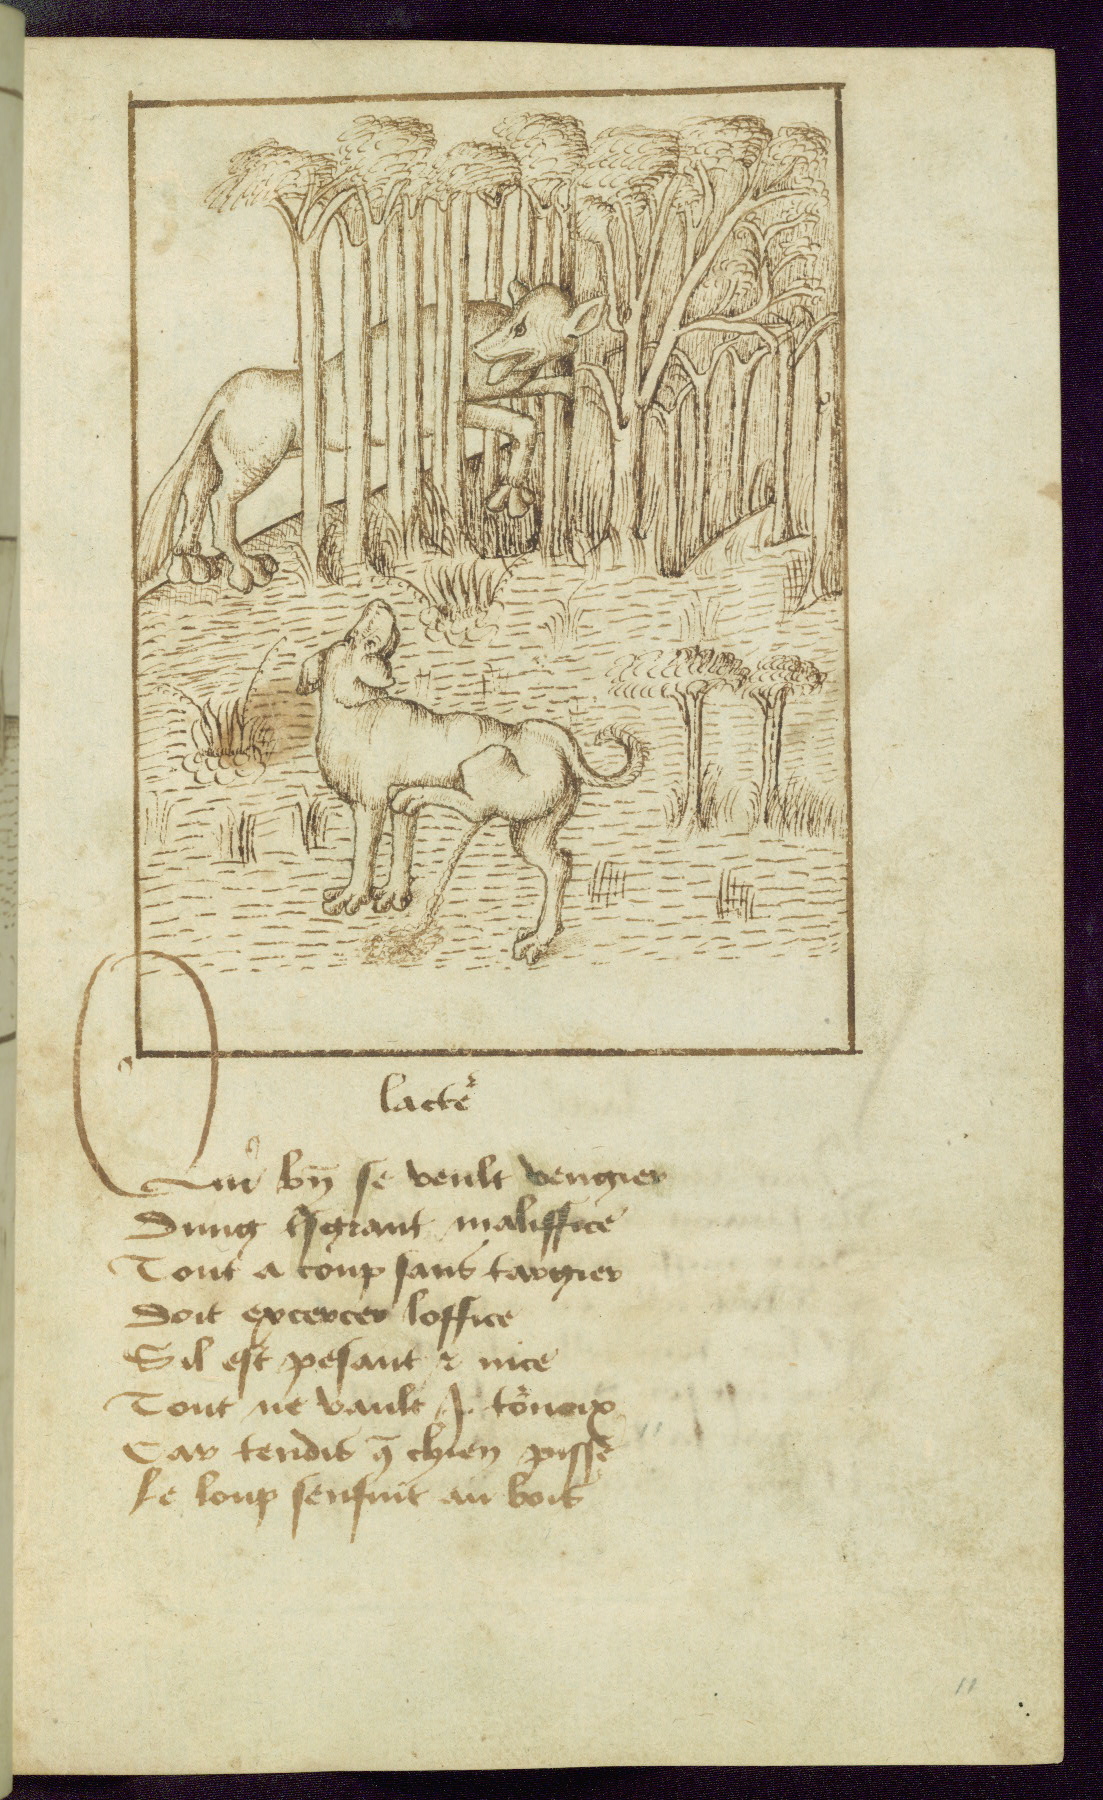 lacte᷒
Qui bn̄ se veult vengier
Dung tsgrant maliffice
Tout a coup sans targier
Doit excercer loffice
Sil est pesant ⁊ nice
Tout ne vault tōnoix
Car tendis q̄ chien pisse
Le loup senfuit au bois
11